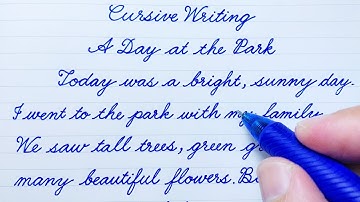 Cursive Writing
A Day at the Park
Today was a bright, sunny day.
I went to the park with my family
We saw tall trees, green
many beautiful flowers.